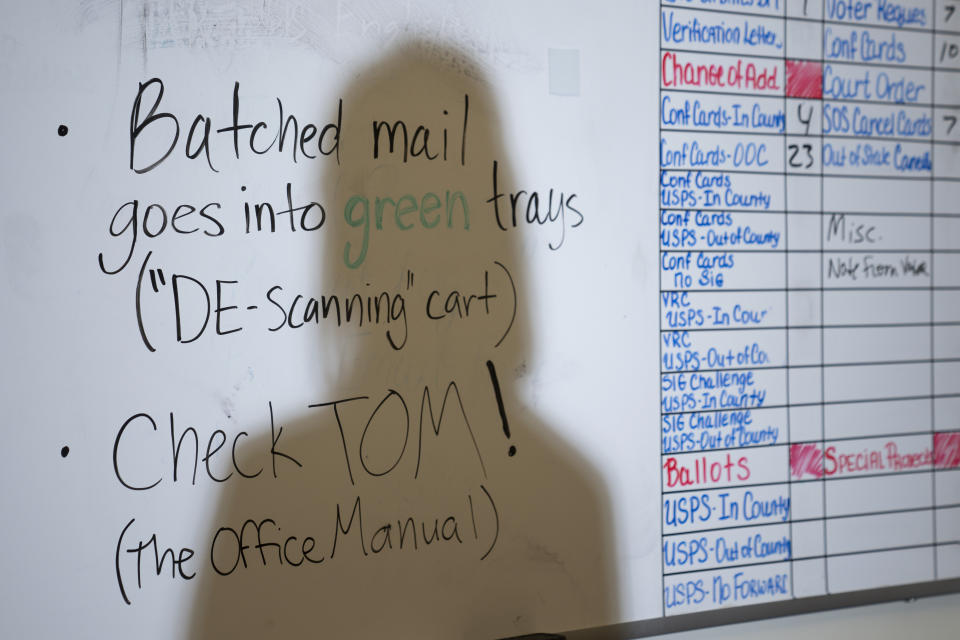 • Batched mail
goes into green trays
("DE-scanning" cart)
• Check TOM!
(the Office Manual)
Voter Reques 7
Verification Letter Conf Cards 10
Change of Add Court Order
Conf Cards-In County 4 SOS Cancel Cards 7
Conf Cards-OOC 23 Out of State Cancella
Conf Cards
USPS-In County
Conf Cards
USPS-Out of County Misc.
Conf Cards
no Sig Note From
VRC
USPS-In Cour
VRC
USPS-Out of Co
SIG Challenge
USPS-In County
SIG Challenge
USPS-Out of County
Ballots SPECIAL Projects
USPS-In County
USPS-Out of County
USPS-No FORWARD